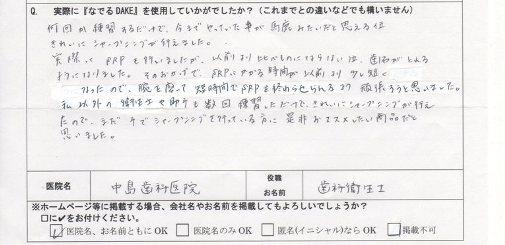 Q. 実際に『なでるDAKE』を使用していかがでしたか?(これまでとの違いなどでも構いません)
何回か練習するだけで、今までやっていた事が馬鹿みたいだと思える位
きれいにシャープニングが行えました。
実際に PRP を行いましたが、以前より比べものにならない位、歯石がとれる
ようになりました。そのおかげで、PRPにかかる時間が以前より少し短く
なったので、腕を磨って短時間でPRPを終わらせられるよう頑張ろうと思いました。
私以外の衛生士や助手も数回練習しただけで、きれいにシャープニングが行え
たので、まだ手でシャープニングを行っている方に是非おススメしたい商品だと
思いました。
医院名 中島歯科医院 役職 お名前 歯科衛生士
※ホームページ等に掲載する場合、会社名やお名前を掲載してもよろしいでしょうか?
口に✓をお付けください。
☑医院名、お名前ともにOK □医院名のみOK □匿名(イニシャル)ならOK □掲載不可